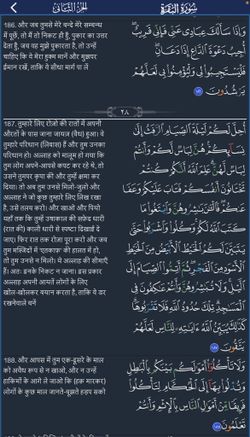 الجزء الثاني
سورة البقرة
186. और जब तुमसे मेरे बन्दे मेरे सम्बन्ध
में पूछें, तो मैं तो निकट ही हूँ, पुकार का उत्तर
देता हूँ, जब वह मुझे पुकारता है, तो उन्हें
चाहिए कि वे मेरा हुक्म मानें और मुझपर
ईमान रखें, ताकि वे सीधा मार्ग पा लें
وَإِذَا سَأَلَكَ عِبَادِى عَنِّى فَإِنِّى قَرِيبٌ
أُجِيبُ دَعْوَةَ ٱلدَّاعِ إِذَا دَعَانِ
فَلْيَسْتَجِيبُوا۟ لِى وَلْيُؤْمِنُوا۟ بِى لَعَلَّهُمْ
يَرْشُدُونَ ١٨٦
٢٨
187. तुम्हारे लिए रोज़ो की रातों में अपनी
औरतों के पास जाना जायज़ (वैध) हुआ। वे
तुम्हारे परिधान (लिबास) हैं और तुम उनका
परिधान हो। अल्लाह को मालूम हो गया कि
तुम लोग अपने-आपसे कपट कर रहे थे, तो
उसने तुमपर कृपा की और तुम्हें क्षमा कर
दिया। तो अब तुम उनसे मिलो-जुलो और
अल्लाह ने जो कुछ तुम्हारे लिए लिख रखा
है, उसे तलब करो। और खाओ और पियो
यहाँ तक कि तुम्हें उषाकाल की सफ़ेद धारी
(रात की) काली धारी से स्पष्टा दिखाई दे
जाए। फिर रात तक रोज़ा पूरा करो और जब
तुम मस्जिदों में 'एतकाफ़' की हालत में हो,
तो तुम उनसे न मिलो। ये अल्लाह की सीमाएँ
हैं। अतः इनके निकट न जाना। इस प्रकार
अल्लाह अपनी आयतें लोगों के लिए
खोल-खोलकर बयान करता है, ताकि वे डर
रखनेवाले बनें
أُحِلَّ لَكُمْ لَيْلَةَ ٱلصِّيَامِ ٱلرَّفَثُ إِلَىٰ
نِسَآئِكُمْ هُنَّ لِبَاسٌ لَّكُمْ وَأَنتُمْ
لِبَاسٌ لَّهُنَّ عَلِمَ ٱللَّهُ أَنَّكُمْ كُنتُمْ
تَخْتَانُونَ أَنفُسَكُمْ فَتَابَ عَلَيْكُمْ وَعَفَا
عَنكُمْ فَٱلْـَٰٔنَ بَـٰشِرُوهُنَّ وَٱبْتَغُوا۟ مَا
كَتَبَ ٱللَّهُ لَكُمْ وَكُلُوا۟ وَٱشْرَبُوا۟ حَتَّىٰ
يَتَبَيَّنَ لَكُمُ ٱلْخَيْطُ ٱلْأَبْيَضُ مِنَ ٱلْخَيْطِ
ٱلْأَسْوَدِ مِنَ ٱلْفَجْرِ ثُمَّ أَتِمُّوا۟ ٱلصِّيَامَ إِلَى
ٱلَّيْلِ وَلَا تُبَـٰشِرُوهُنَّ وَأَنتُمْ عَـٰكِفُونَ فِى
ٱلْمَسَـٰجِدِ تِلْكَ حُدُودُ ٱللَّهِ فَلَا تَقْرَبُوهَا
كَذَٰلِكَ يُبَيِّنُ ٱللَّهُ ءَايَـٰتِهِۦ لِلنَّاسِ لَعَلَّهُمْ
يَتَّقُونَ ١٨٧
188. और आपस में तुम एक-दूसरे के माल
को अवैध रूप से न खाओ, और न उन्हें
हाकिमों के आगे ले जाओ कि (हक़ मारकर)
लोगों के कुछ माल जानते-बूझते हड़प सको
وَلَا تَأْكُلُوٓا۟ أَمْوَٰلَكُم بَيْنَكُم بِٱلْبَـٰطِلِ
وَتُدْلُوا۟ بِهَآ إِلَى ٱلْحُكَّامِ لِتَأْكُلُوا۟
فَرِيقًا مِّنْ أَمْوَٰلِ ٱلنَّاسِ بِٱلْإِثْمِ وَأَنتُمْ
تَعْلَمُونَ ١٨٨